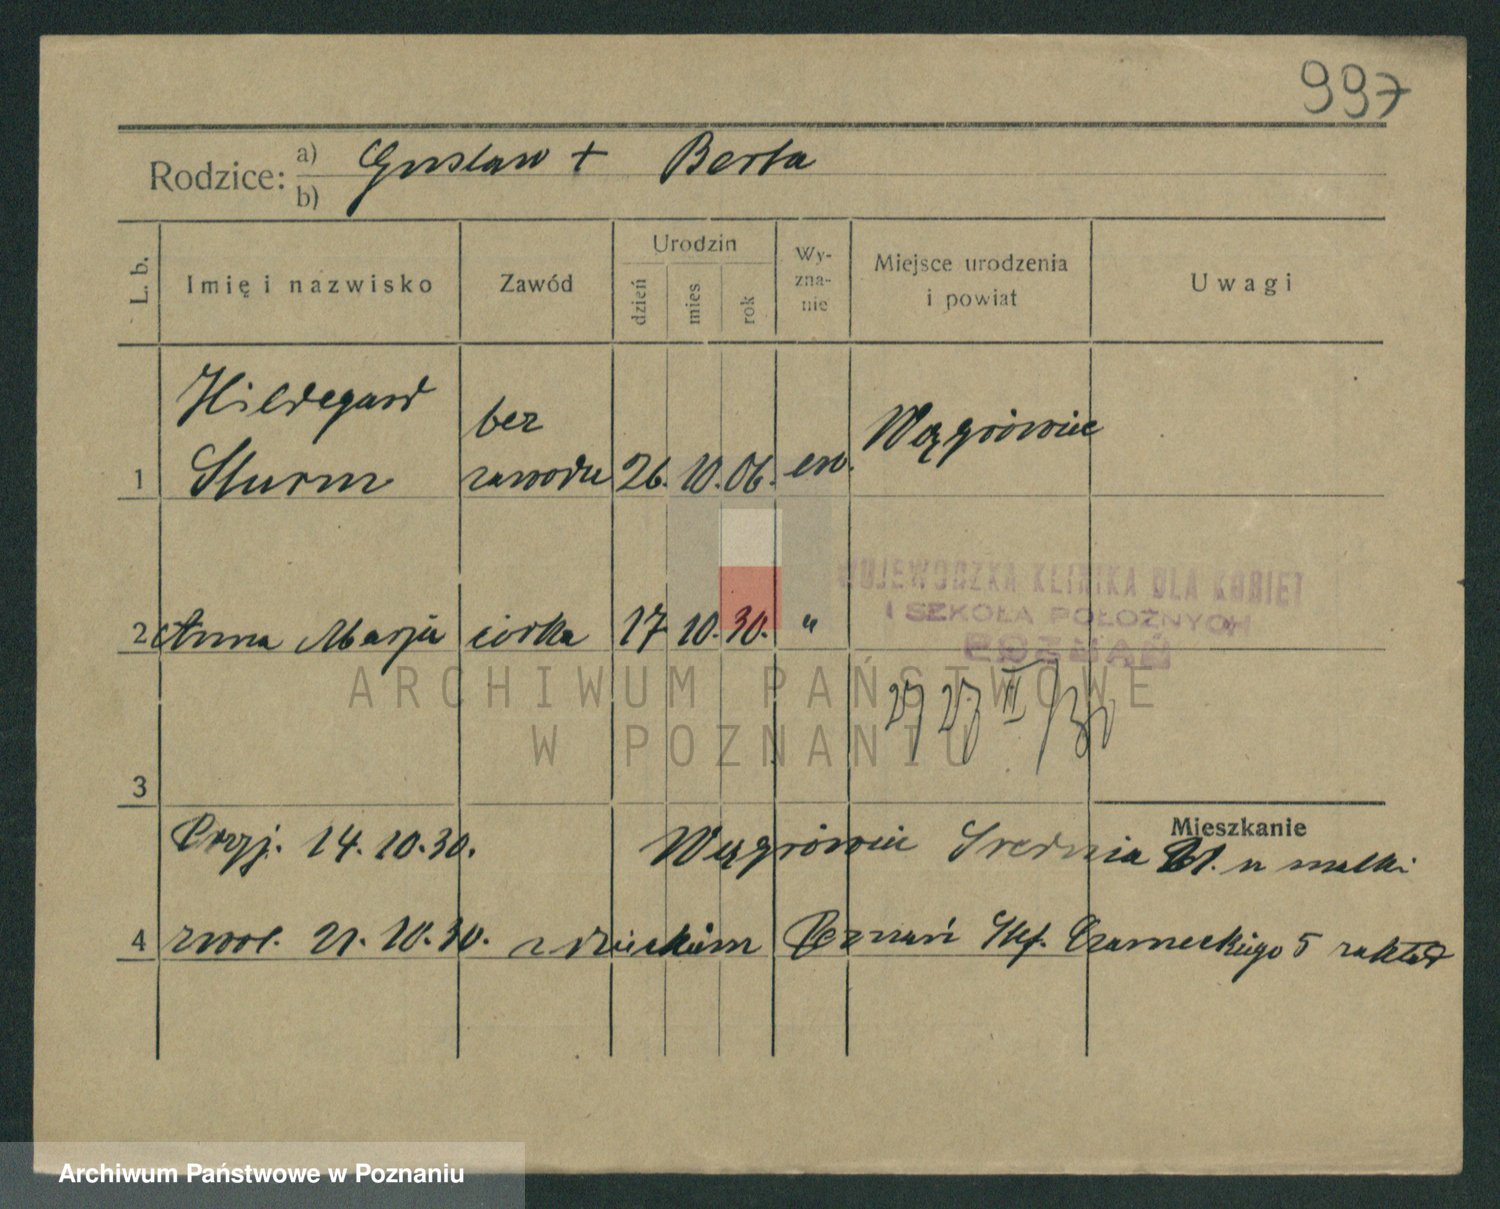 997
Rodzice: a) Gustaw + Berta
b)
L. b. Imię i nazwisko Zawód Urodzin dzień mies rok Wy-zna-nie Miejsce urodzenia i powiat Uwagi
Hildegard bez Wągrówiec
1 Sturm zawodu 26. 10. 06. ew.
WOJEWÓDZKA KLINIKA DLA KOBIET
I SZKOŁA POŁOŻNYCH
POZNAŃ
2 Anna Marja córka 17 10. 30. "
ARCHIWUM PAŃSTWOWE
W POZNANIU
3
Mieszkanie
Przyj. 14. 10. 30. Wągrówiec Srednia 21. u matki
4 zwol. 21. 10. 30. z dzieckiem Poznań Czarneckiego 5 zakład
Archiwum Państwowe w Poznaniu